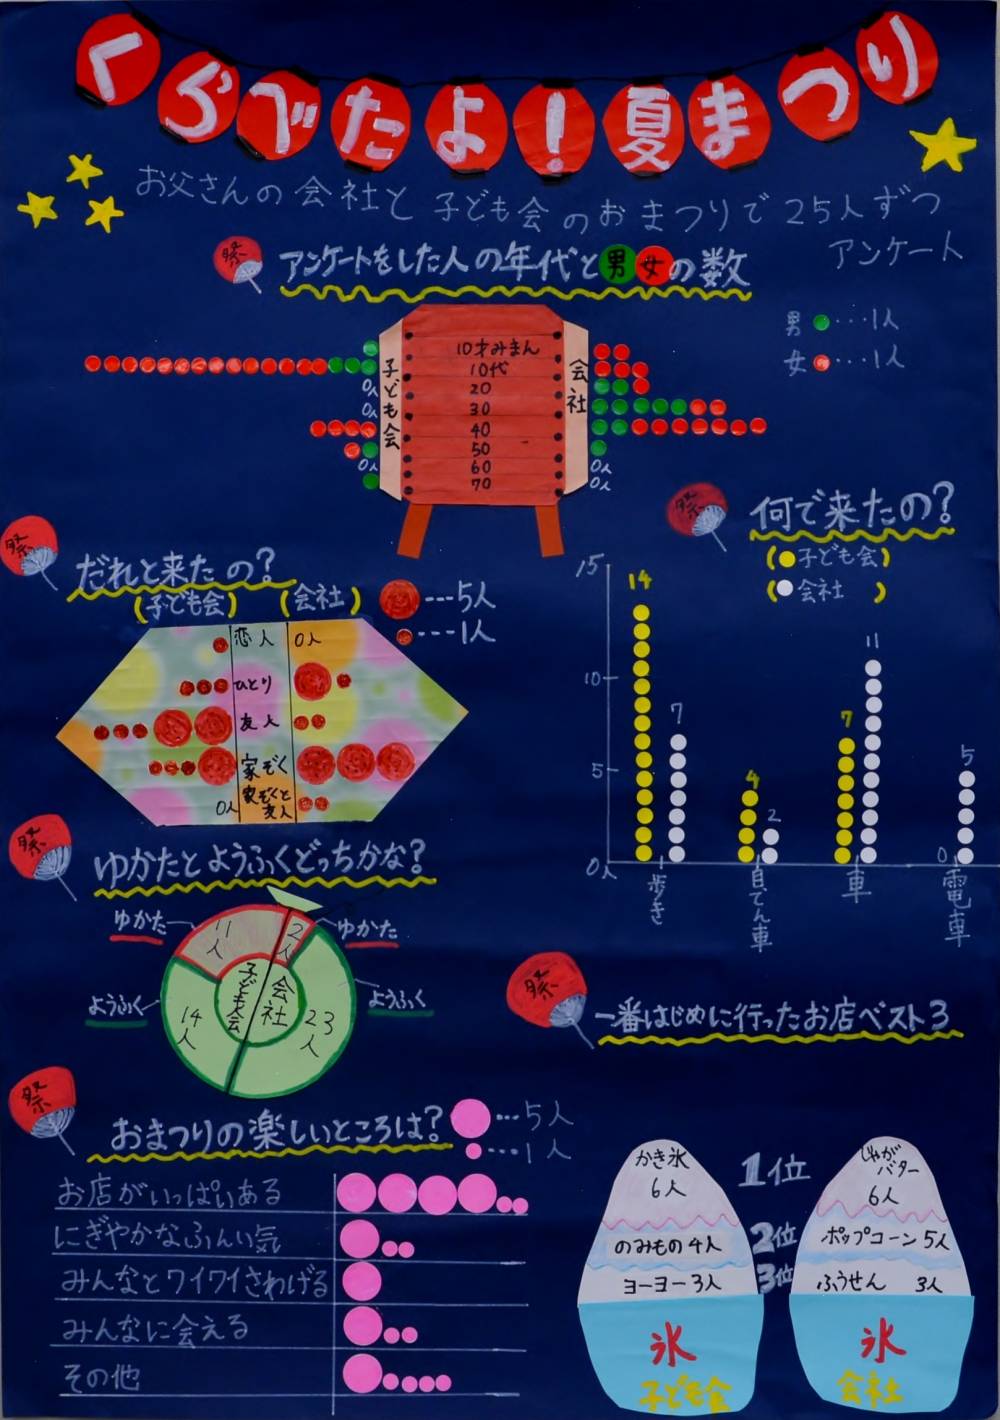 くらべたよ!夏まつり
お父さんの会社と子ども会のおまつりで25人ずつ
アンケート
祭
アンケートをした人の年代と男女の数
男 ・・・1人
女 ・・・1人
子ども会
会社
10才みまん
10代
0人 20
0人 30
40
50
0人 60 0人
70 0人
祭
何で来たの?
(子ども会)
(会社)
15
10
5
0人
14
7
4
2
7
11
0
5
歩き
自てん車
車
電車
祭
だれと来たの?
(子ども会) (会社)
---5人
---1人
恋人 0人
ひとり
友人
家ぞく
0人 家ぞくと友人
祭
ゆかたとようふくどっちかな?
ゆかた 11人 2人 ゆかた
子ども会 会社
ようふく 14人 23人 ようふく
祭
一番はじめに行ったお店ベスト3
祭
おまつりの楽しいところは?
・・・5人
・・・1人
お店がいっぱいある
にぎやかなふんい気
みんなとワイワイさわげる
みんなに会える
その他
かき氷
6人
1位
じゃがバター
6人
のみもの4人
2位
ポップコーン 5人
ヨーヨー3人
3位
ふうせん 3人
氷
子ども会
氷
会社